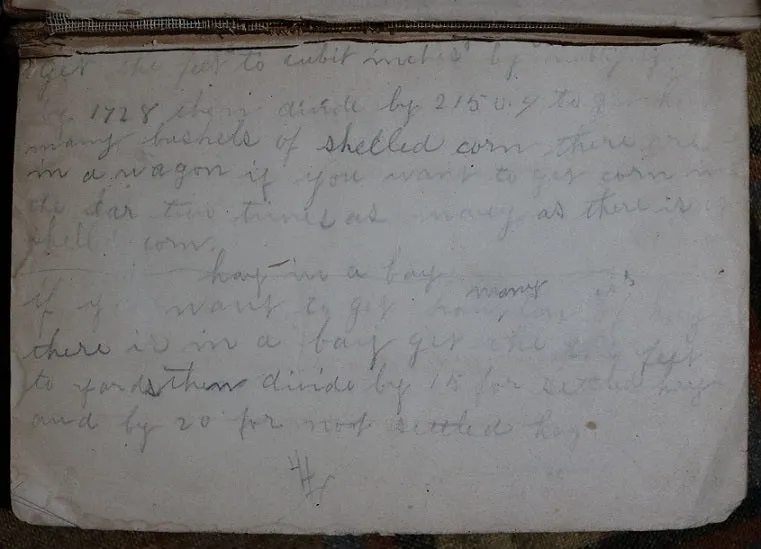 Get the feet to cubit inches by
by 1728 then divide by 2150.4 to
many bushels of shelled corn there are
in a wagon if you want to get corn in
the ear two times as many as there is
shell corn.
hay in a bay
if y want to get how many of hay
there is in a bay get the feet
to yards then divide by 15 for settled hay
and by 20 for not settled hay